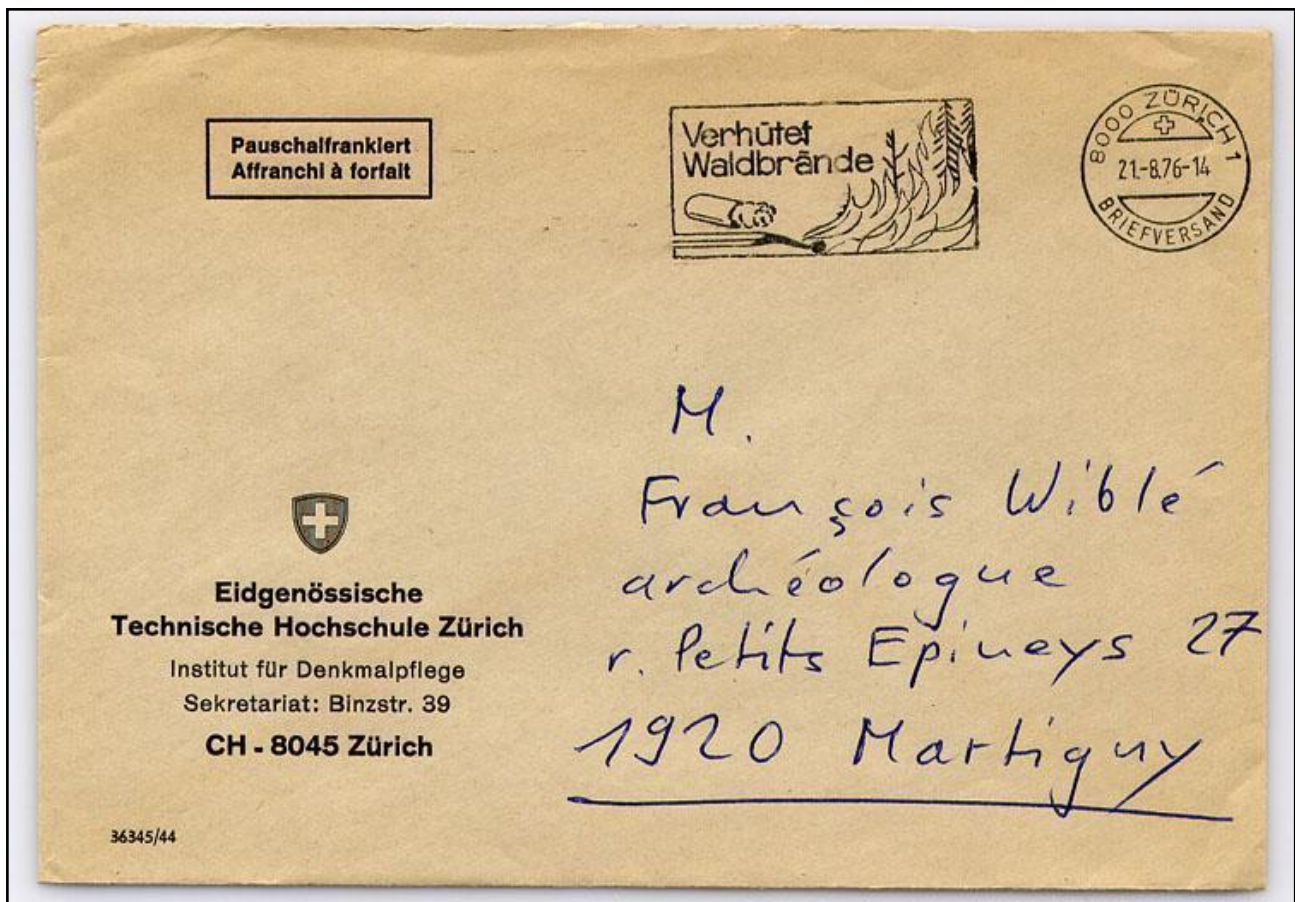 Pauschalfrankiert
Affranchi à forfait
Verhütet
Waldbrände
8000 ZÜRICH 1
21.-8.76-14
BRIEFVERSAND
M.
François Wiblé
archéologue
r. Petits Epineys 27
1920 Martigny
Eidgenössische
Technische Hochschule Zürich
Institut für Denkmalpflege
Sekretariat: Binzstr. 39
CH - 8045 Zürich
36345/44